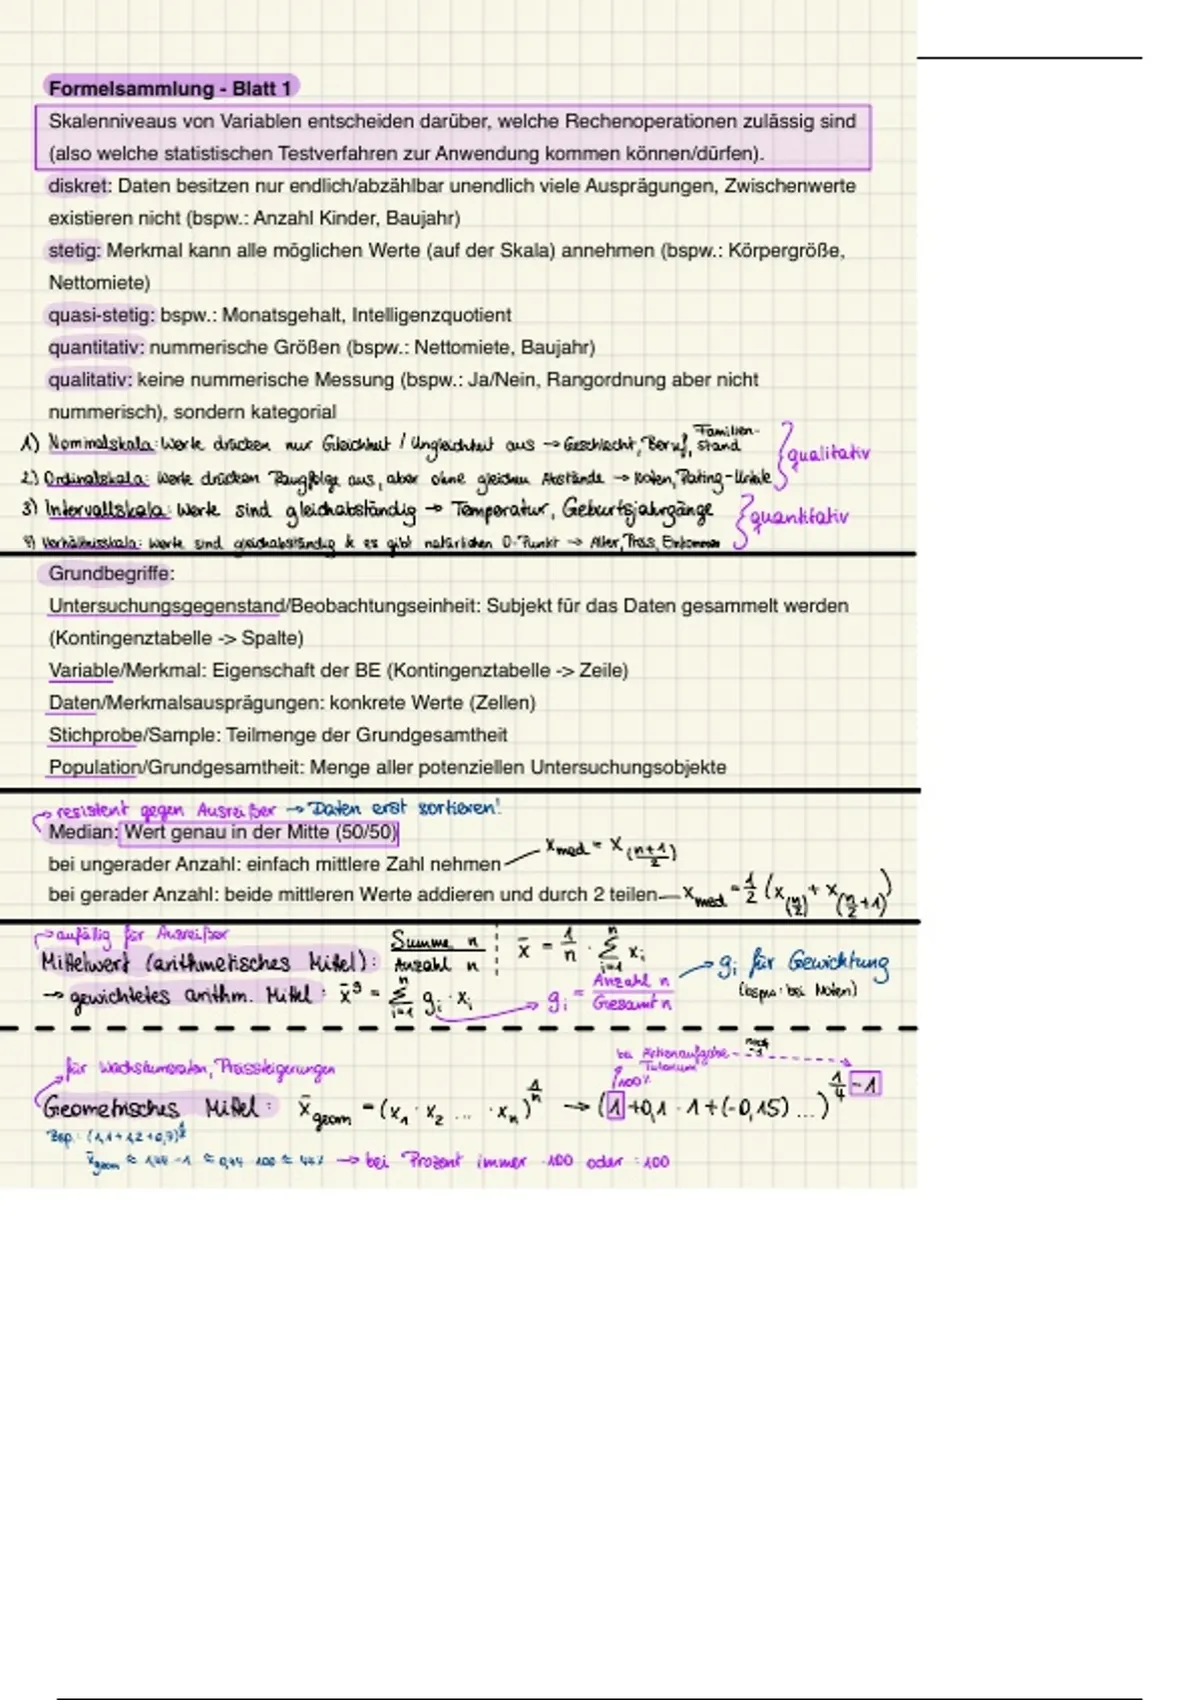 Formelsammlung - Blatt 1
Skalenniveaus von Variablen entscheiden darüber, welche Rechenoperationen zulässig sind
(also welche statistischen Testverfahren zur Anwendung kommen können/dürfen).
diskret: Daten besitzen nur endlich/abzählbar unendlich viele Ausprägungen, Zwischenwerte
existieren nicht (bspw.: Anzahl Kinder, Baujahr)
stetig: Merkmal kann alle möglichen Werte (auf der Skala) annehmen (bspw.: Körpergröße,
Nettomiete)
quasi-stetig: bspw.: Monatsgehalt, Intelligenzquotient
quantitativ: nummerische Größen (bspw.: Nettomiete, Baujahr)
qualitativ: keine nummerische Messung (bspw.: Ja/Nein, Rangordnung aber nicht
nummerisch), sondern kategorial
1) Nominalskala: Werte drücken nur Gleichheit / Ungleichheit aus → Geschlecht, Beruf, Familien-stand
2) Ordinalskala: Werte drücken Rangfolge aus, aber ohne gleichen Abstände → Noten, Rating-Urteile
qualitativ
3) Intervallskala: Werte sind gleichabständig → Temperatur, Geburtsjahrgänge
4) Verhältnisskala: Werte sind gleichabständig & es gibt natürlichen 0-Punkt → Alter, Preis, Einkommen
quantitativ
Grundbegriffe:
Untersuchungsgegenstand/Beobachtungseinheit: Subjekt für das Daten gesammelt werden
(Kontingenztabelle -> Spalte)
Variable/Merkmal: Eigenschaft der BE (Kontingenztabelle -> Zeile)
Daten/Merkmalsausprägungen: konkrete Werte (Zellen)
Stichprobe/Sample: Teilmenge der Grundgesamtheit
Population/Grundgesamtheit: Menge aller potenziellen Untersuchungsobjekte
→ resistent gegen Ausreißer → Daten erst sortieren!
Median: Wert genau in der Mitte (50/50)
bei ungerader Anzahl: einfach mittlere Zahl nehmen — x_med = x_((n+1)/2)
bei gerader Anzahl: beide mittleren Werte addieren und durch 2 teilen — x_med = 1/2 (x_(n/2) + x_(n/2+1))
→ anfällig für Ausreißer
Mittelwert (arithmetisches Mittel): Summe n / Anzahl n ¦ x̄ = 1/n · Σ_{i=1}^{n} x_i
→ gewichtetes arithm. Mittel: x̄^g = Σ_{i=1}^{n} g_i · x_i → g_i = Anzahl n / Gesamt n → g_i für Gewichtung
(bspw. bei Noten)
für Wachstumsraten, Preissteigerungen
bei Aktienaufgabe
100%
Geometrisches Mittel: x̄_geom = (x_1 · x_2 ... · x_n)^(1/n) → (1+0,1 · 1+(-0,15) ...)^(1/4) -1
x̄_geom ≈ 1,44 -1 ≈ 0,44 · 100 ≈ 44% → bei Prozent immer ·100 oder :100